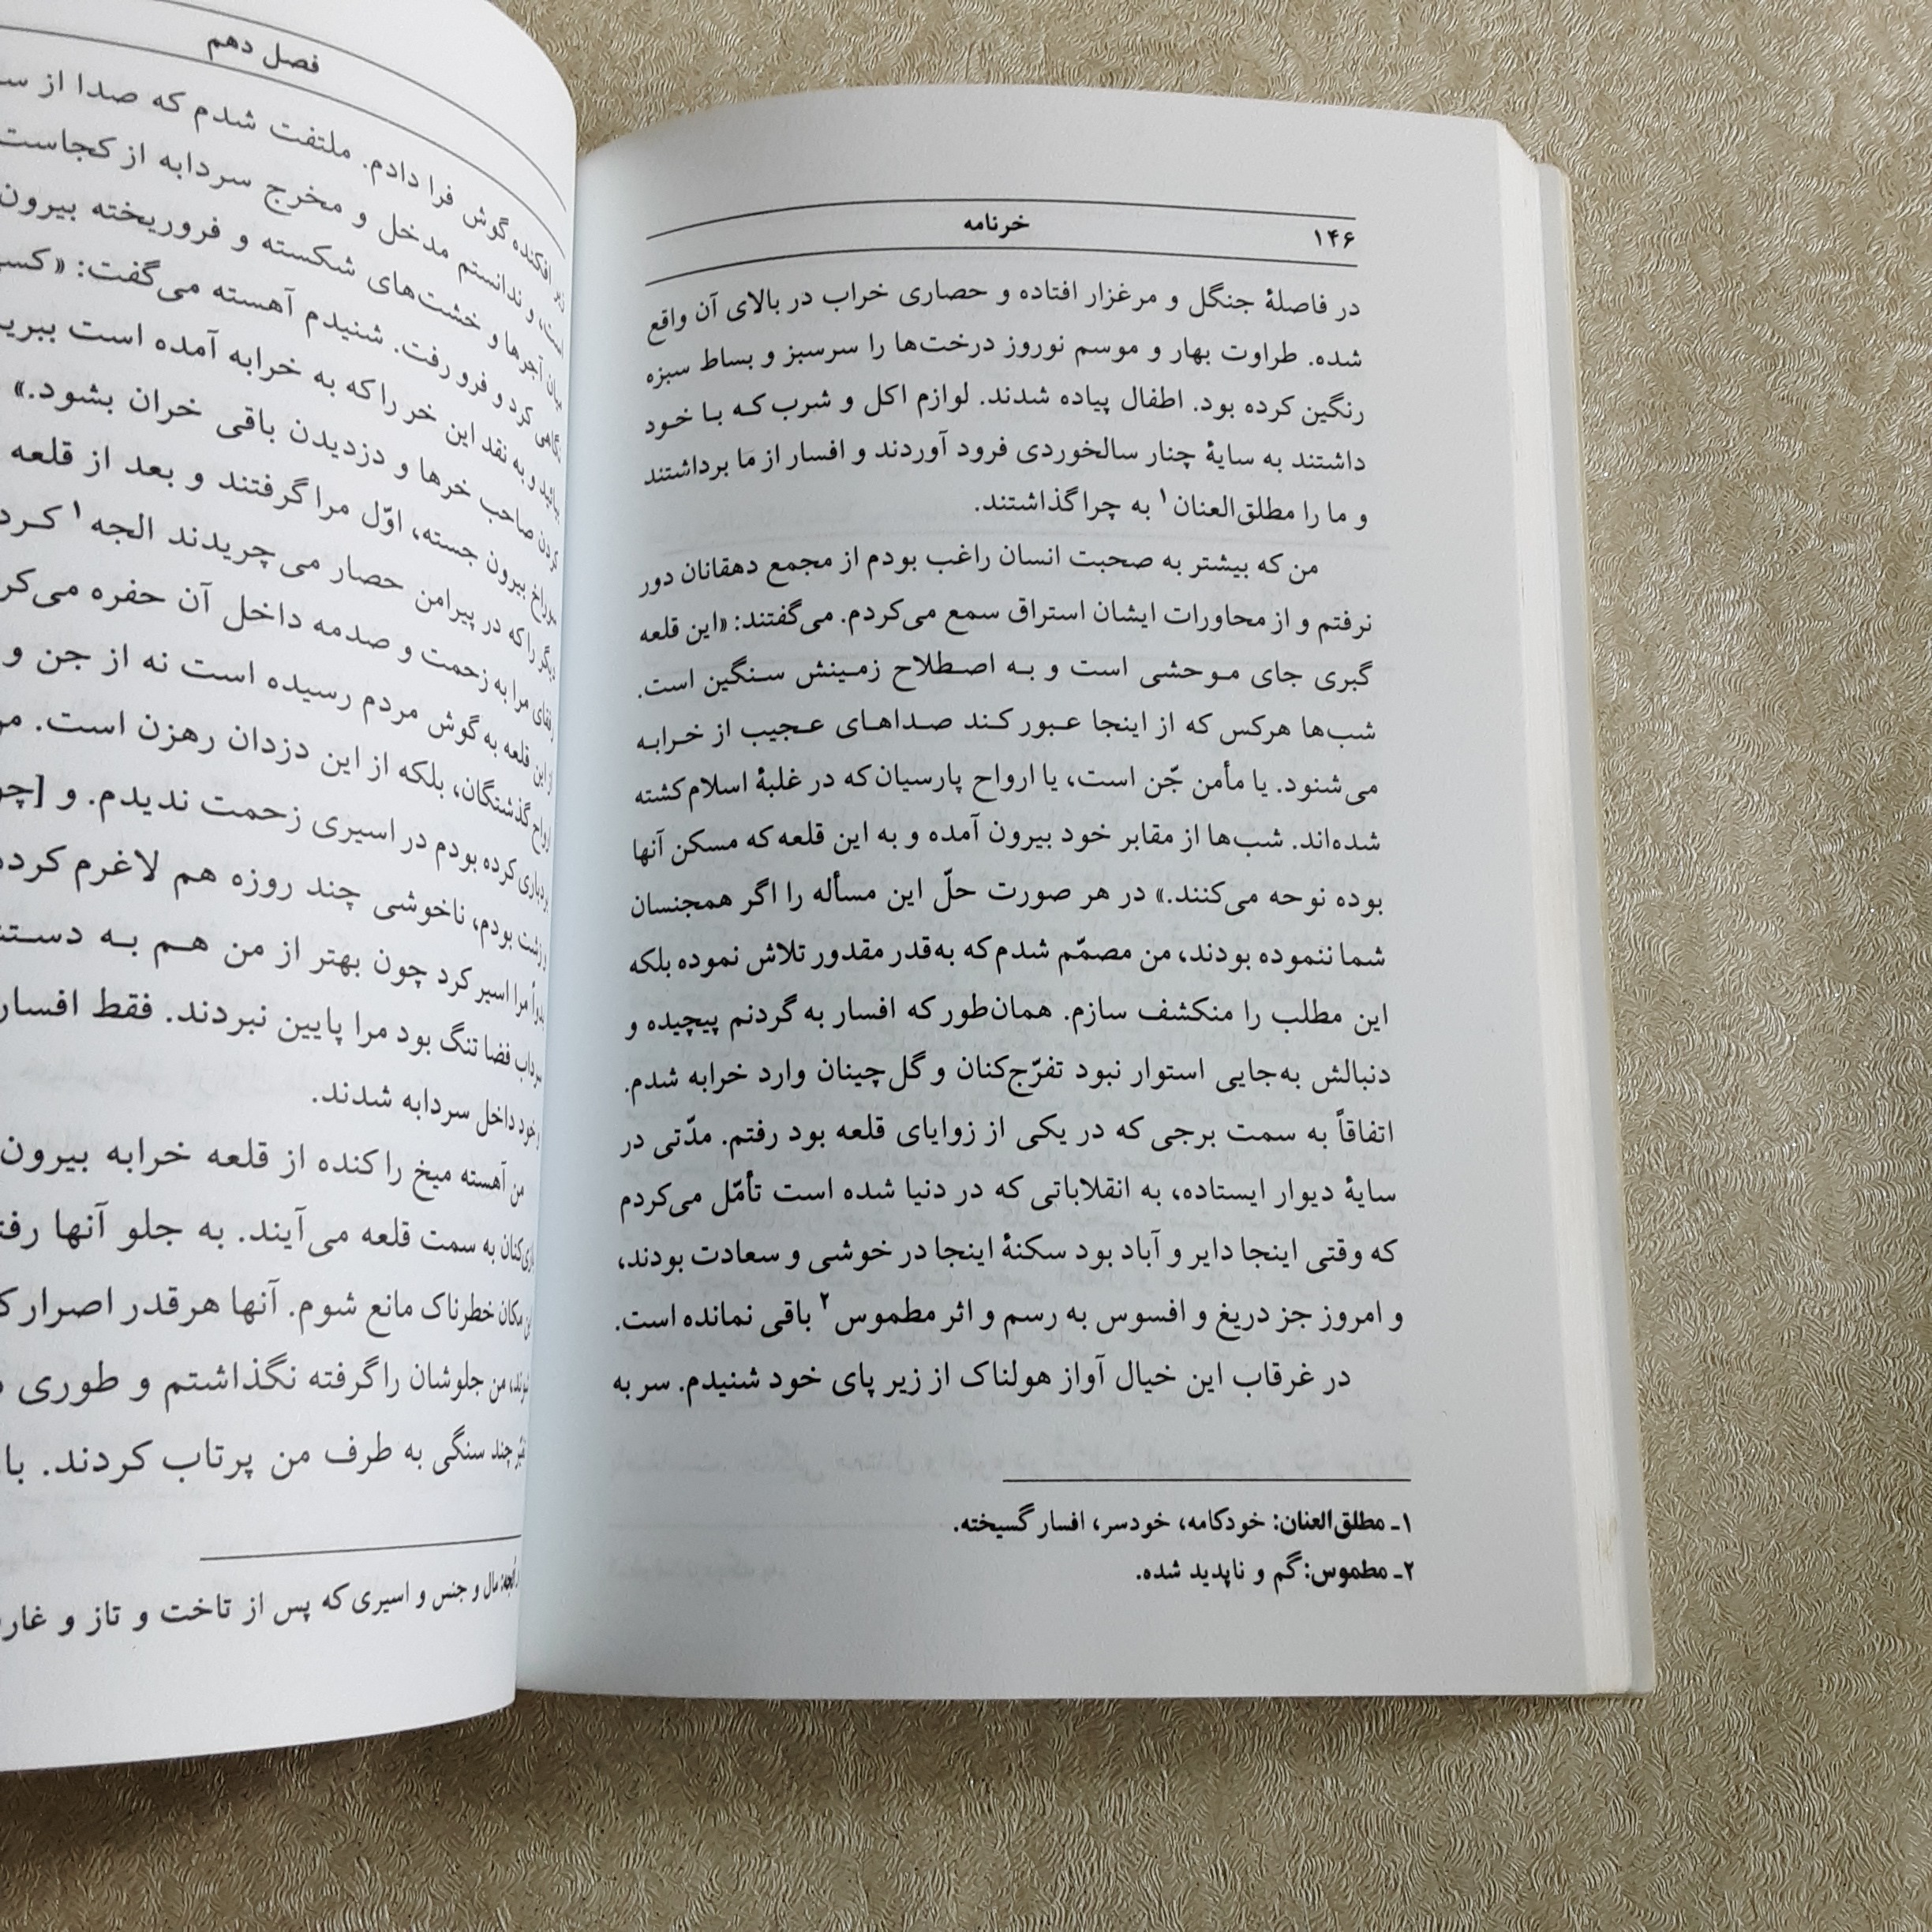 ۱۴۶ خرنامه
در فاصلهٔ جنگل و مرغزار افتاده و حصاری خراب در بالای آن واقع
شده. طراوت بهار و موسم نوروز درخت‌ها را سرسبز و بساط سبزه
رنگین کرده بود. اطفال پیاده شدند. لوازم اکل و شرب که با خود
داشتند به سایهٔ چنار سالخوردی فرود آوردند و افسار از ما برداشتند
و ما را مطلق‌العنان۱ به چرا گذاشتند.
من که بیشتر به صحبت انسان راغب بودم از مجمع دهقانان دور
نرفتم و از محاورات ایشان استراق سمع می‌کردم. می‌گفتند: «این قلعه
گبری جای موحشی است و به اصطلاح زمینش سنگین است.
شب‌ها هرکس که از اینجا عبور کند صداهای عجیب از خرابه
می‌شنود. یا مأمن جّن است، یا ارواح پارسیان که در غلبهٔ اسلام کشته
شده‌اند. شب‌ها از مقابر خود بیرون آمده و به این قلعه که مسکن آنها
بوده نوحه می‌کنند.» در هر صورت حلّ این مسأله را اگر همجنسان
شما ننموده بودند، من مصمّم شدم که به‌قدر مقدور تلاش نموده بلکه
این مطلب را منکشف سازم. همان‌طور که افسار به گردنم پیچیده و
دنبالش به‌جایی استوار نبود تفرّج‌کنان و گل‌چینان وارد خرابه شدم.
اتفاقاً به سمت برجی که در یکی از زوایای قلعه بود رفتم. مدّتی در
سایهٔ دیوار ایستاده، به انقلاباتی که در دنیا شده است تأمّل می‌کردم
که وقتی اینجا دایر و آباد بود سکنهٔ اینجا در خوشی و سعادت بودند،
و امروز جز دریغ و افسوس به رسم و اثر مطموس۲ باقی نمانده است.
در غرقاب این خیال آواز هولناک از زیر پای خود شنیدم. سر به
۱ـ مطلق‌العنان: خودکامه، خودسر، افسار گسیخته.
۲ـ مطموس: گم و ناپدید شده.
فصل دهم
افکنده گوش فرا دادم. ملتفت شدم که صدا از
است، و ندانستم مدخل و مخرج سردابه از کجاست
میان آجرها و خشت‌های شکسته و فروریخته بیرون
نگاهی کرد و فرو رفت. شنیدم آهسته می‌گفت:
و به نقد این خر را که به خرابه آمده است
کردن صاحب خرها و دزدیدن باقی خران بشود.»
سوراخ بیرون جسته، اوّل مرا گرفتند و بعد از قلعه
دیگر را که در پیرامن حصار می‌چریدند الجه۱
رفقای مرا به زحمت و صدمه داخل آن حفره
از این قلعه به گوش مردم رسیده است نه از جن و
ارواح گذشتگان، بلکه از این دزدان رهزن است.
بردباری کرده بودم در اسیری زحمت ندیدم. و
زشت بودم، ناخوشی چند روزه هم لاغرم
مرا اسیر کرد چون بهتر از من هم به
سرداب فضا تنگ بود مرا پایین نبردند. فقط افسار
خود داخل سردابه شدند.
من آهسته میخ را کنده از قلعه خرابه بیرون
به سمت قلعه می‌آیند. به جلو آنها
مکان خطرناک مانع شوم. آنها هرقدر اصرار
من جلوشان را گرفته نگذاشتم و طوری
چند سنگی به طرف من پرتاب کردند.
مال و جنس و اسیری که پس از تاخت و تاز و